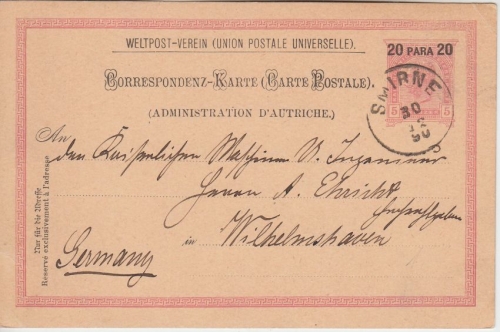 WELTPOST-VEREIN (UNION POSTALE UNIVERSELLE).
20 PARA 20
CORRESPONDENZ-KARTE (CARTE POSTALE).
(ADMINISTRATION D'AUTRICHE).
5 5
SMIRNE
30
90
An
den Kaiserlichen Maschinen U. Ingenieur
Herrn A. Ehricht
in Wilhelmshaven
Germany
Nur für die Adresse
Reservé exclusivement à l'adresse